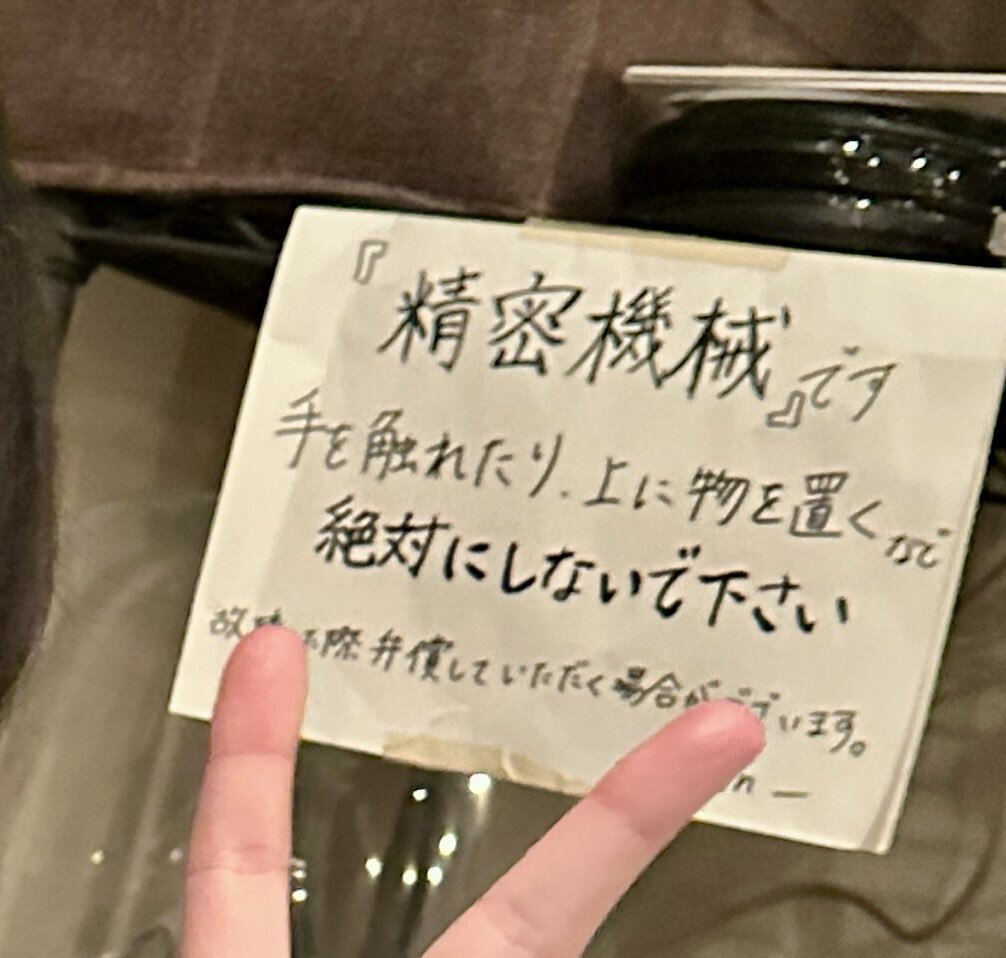 『精密機械』です
手を触れたり、上に物を置くなど
絶対にしないで下さい
故 際弁償していただく場合がございます。